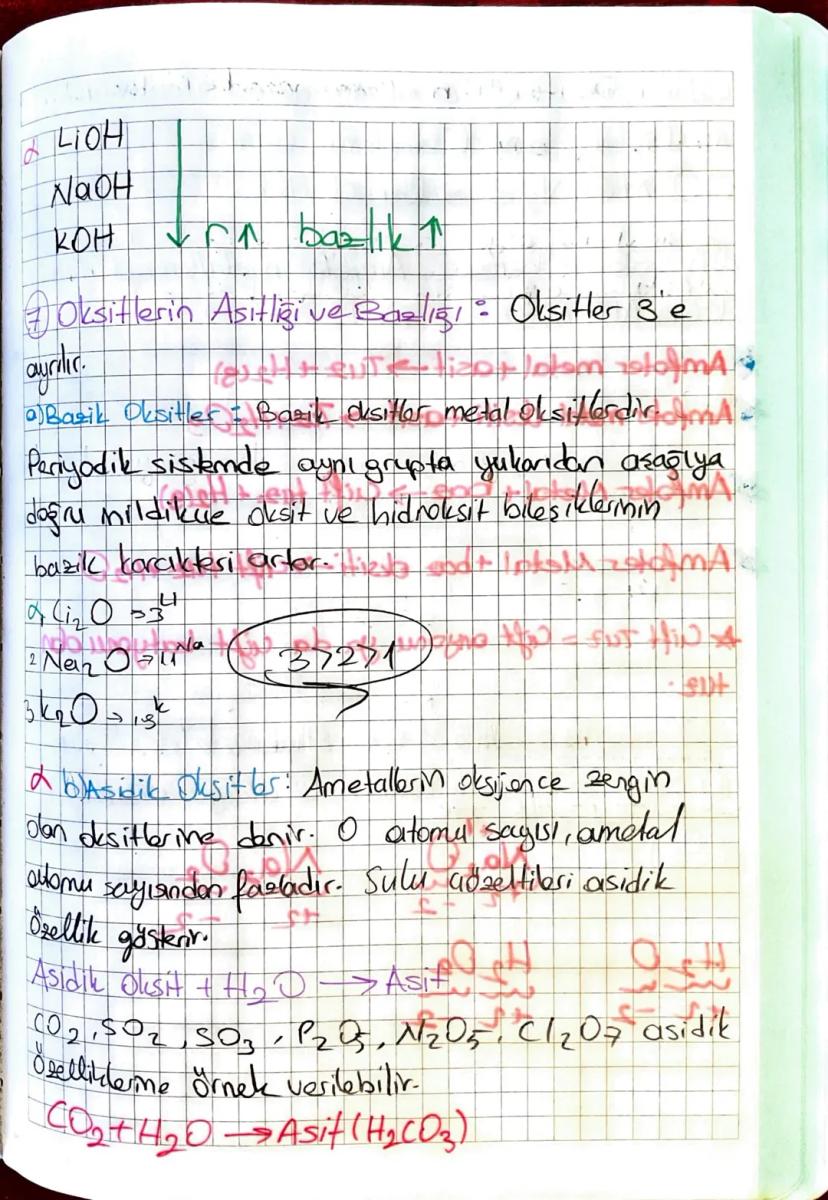 LiOH
NaOH
KOH r↑ bazlık ↑
7 Oksitlerin Asitliği ve Bazlığı : Oksitler 3'e
ayrılır.
a) Bazik Oksitler : Bazik oksitler metal oksitlerdir.
Periyodik sistemde aynı grupta yukarıdan aşağıya
doğru inildikçe oksit ve hidroksit bileşiklerinin
bazik karakteri artar.
Li2O → 3Li
2 Na2O → 11Na 3>2>1
3 K2O → 19K
b) Asidik Oksitler : Ametallerin oksijence zengin
olan oksitlerine denir. O atomu sayısı, ametal
atomu sayısından fazladır. Sulu çözeltileri asidik
özellik gösterir.
Asidik Oksit + H2O → Asit
CO2, SO2, SO3, P2O5, N2O5, Cl2O7 asidik
özelliklerine örnek verilebilir.
CO2 + H2O → Asit (H2CO3)